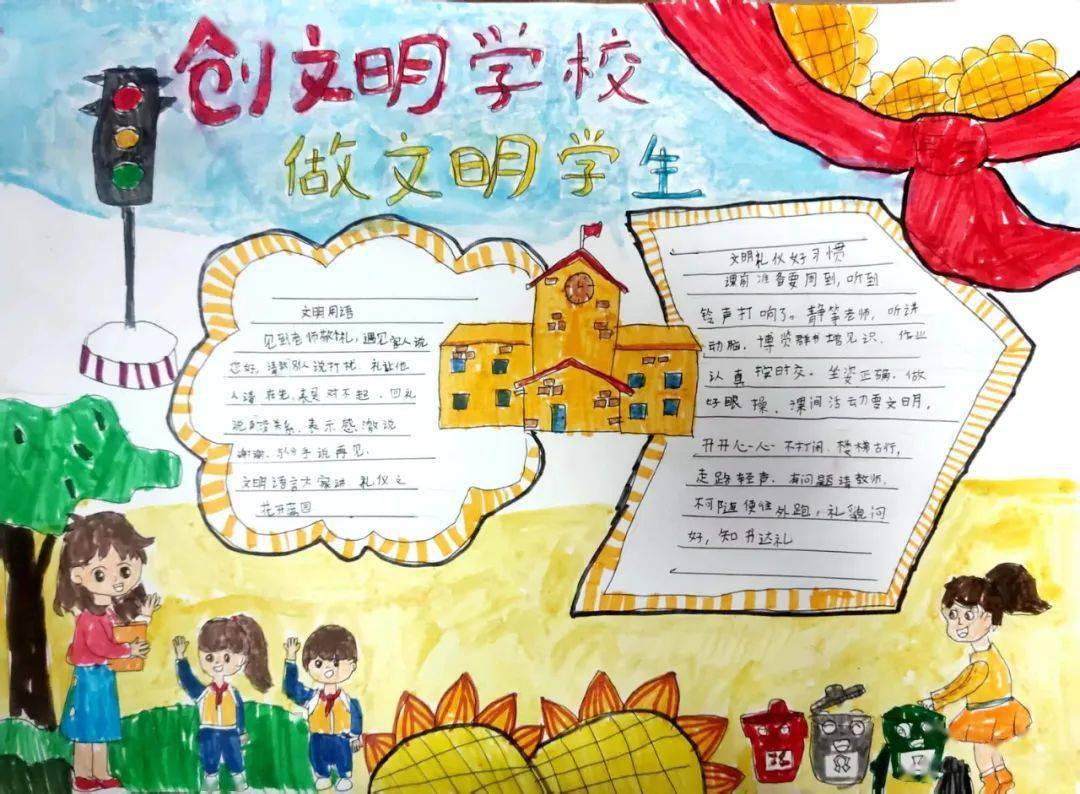 创文明学校
做文明学生
文明用语
见到老师敬礼，遇见客人说
您好，请教别人说打扰、礼让他
人请在先、表 对不起、回礼
说 没关系、表示感激说
谢谢、分手说再见、
文明语言大家讲 礼仪之
花开 园
文明礼仪好习惯
课前准备要周到，听到
铃声打响了。静等老师，听讲
动脑，博览群书增见识，作业
认真按时交。坐姿正确、做
好眼操、课间活动要文明，
开开心心不打闹、楼梯右行，
走路轻声，有问题请教师，
不可随便往外跑，礼貌问
好，知书达礼